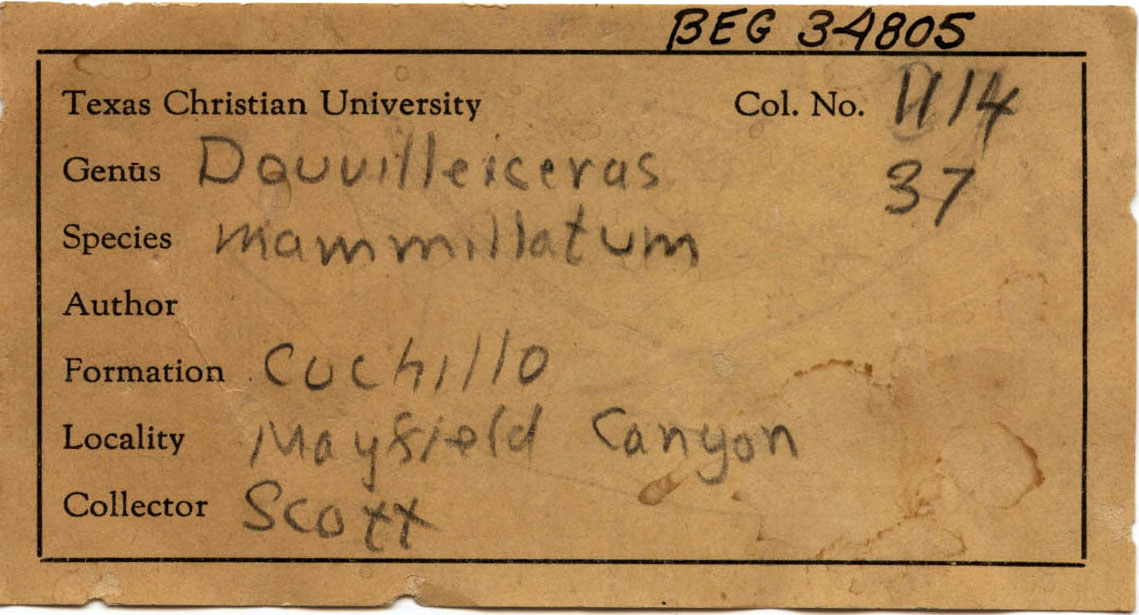 BEG 34805
Texas Christian University Col. No. 1114
Genus Douvilleiceras 37
Species mammillatum
Author
Formation Cuchillo
Locality Mayfield Canyon
Collector Scott